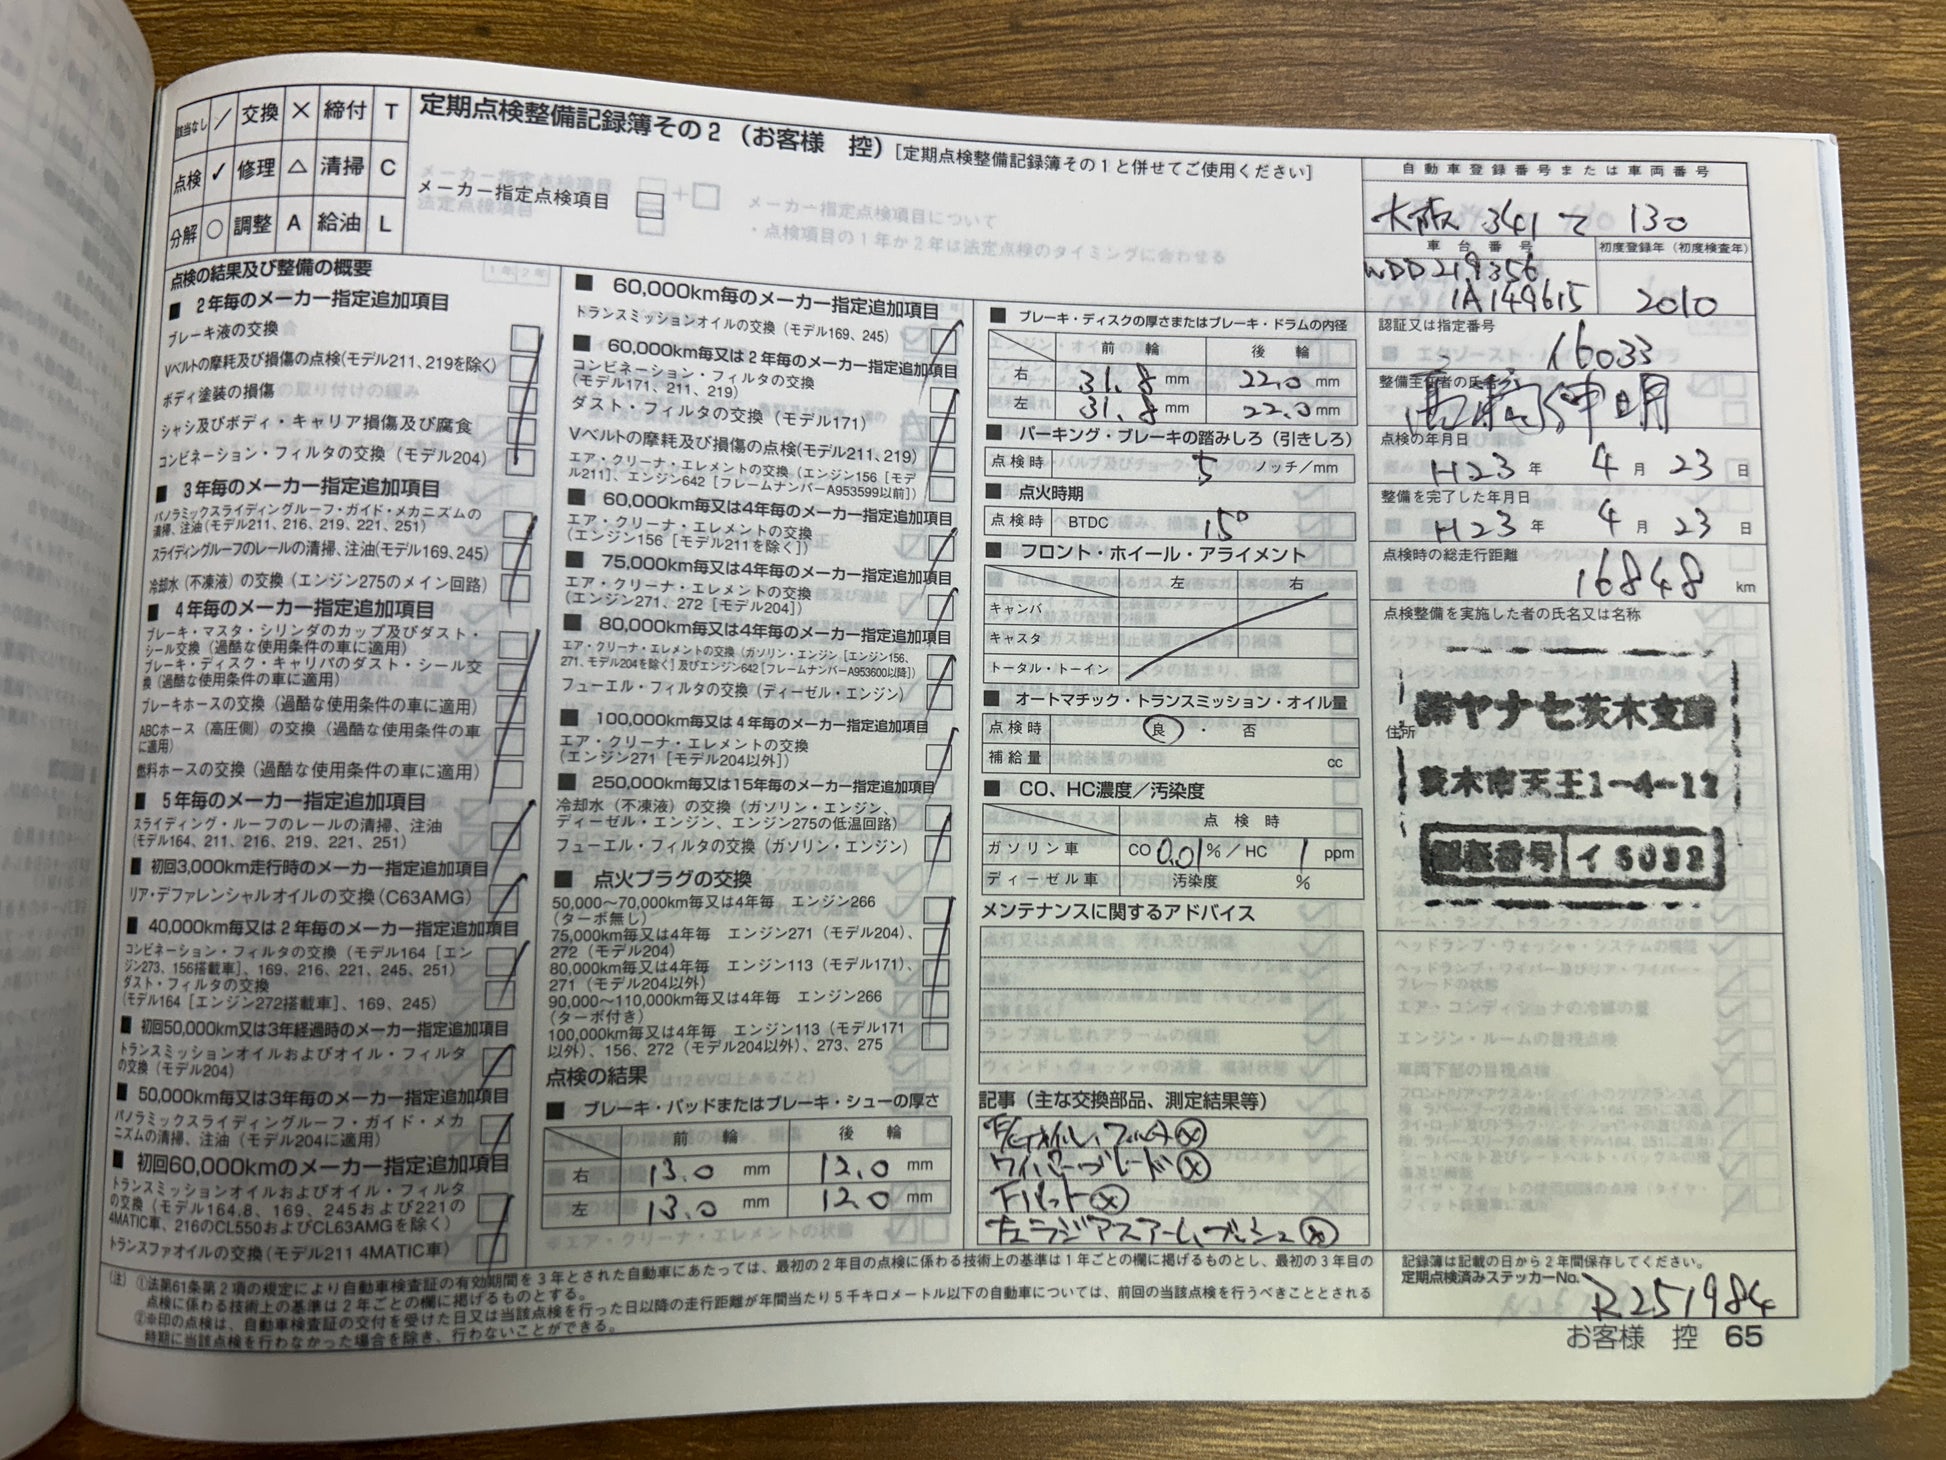 該当なし ／ 交換 × 締付 T
点検 ✓ 修理 △ 清掃 C
分解 ○ 調整 A 給油 L
定期点検整備記録簿その2（お客様　控）[定期点検整備記録簿その1と併せてご使用ください]
メーカー指定点検項目
点検の結果及び整備の概要
■ 2年毎のメーカー指定追加項目
ブレーキ液の交換
Vベルトの摩耗及び損傷の点検(モデル211、219を除く)
ボディ塗装の損傷
シャシ及びボディ・キャリア損傷及び腐食
コンビネーション・フィルタの交換（モデル204）
■ 3年毎のメーカー指定追加項目
パノラミックスライディングルーフ・ガイド・メカニズムの
清掃、注油(モデル211、216、219、221、251)
スライディングルーフのレールの清掃、注油(モデル169、245)
冷却水（不凍液）の交換（エンジン275のメイン回路）
■ 4年毎のメーカー指定追加項目
ブレーキ・マスタ・シリンダのカップ及びダスト・
シール交換（過酷な使用条件の車に適用）
ブレーキ・ディスク・キャリパのダスト・シール交
換（過酷な使用条件の車に適用）
ブレーキホースの交換（過酷な使用条件の車に適用）
ABCホース（高圧側）の交換（過酷な使用条件の車
に適用）
燃料ホースの交換（過酷な使用条件の車に適用）
■ 5年毎のメーカー指定追加項目
スライディング・ルーフのレールの清掃、注油
(モデル164、211、216、219、221、251)
■ 初回3,000km走行時のメーカー指定追加項目
リア・デファレンシャルオイルの交換(C63AMG)
■ 40,000km毎又は2年毎のメーカー指定追加項目
コンビネーション・フィルタの交換（モデル164［エン
ジン273、156搭載車］、169、216、221、245、251)
ダスト・フィルタの交換
(モデル164［エンジン272搭載車］、169、245)
■ 初回50,000km又は3年経過時のメーカー指定追加項目
トランスミッションオイルおよびオイル・フィルタ
の交換（モデル204）
■ 50,000km毎又は3年毎のメーカー指定追加項目
パノラミックスライディングルーフ・ガイド・メカ
ニズムの清掃、注油（モデル204に適用）
■ 初回60,000kmのメーカー指定追加項目
トランスミッションオイルおよびオイル・フィルタ
の交換（モデル164.8、169、245および221の
4MATIC車、216のCL550およびCL63AMGを除く）
トランスファオイルの交換（モデル211 4MATIC車）
■ 60,000km毎のメーカー指定追加項目
トランスミッションオイルの交換（モデル169、245)
■ 60,000km毎又は2年毎のメーカー指定追加項目
コンビネーション・フィルタの交換
（モデル171、211、219）
ダスト・フィルタの交換（モデル171）
Vベルトの摩耗及び損傷の点検(モデル211、219)
エア・クリーナ・エレメントの交換（エンジン156［モデ
ル211］、エンジン642［フレームナンバーA953599以前］）
■ 60,000km毎又は4年毎のメーカー指定追加項目
エア・クリーナ・エレメントの交換
（エンジン156［モデル211を除く］）
■ 75,000km毎又は4年毎のメーカー指定追加項目
エア・クリーナ・エレメントの交換
（エンジン271、272［モデル204］）
■ 80,000km毎又は4年毎のメーカー指定追加項目
エア・クリーナ・エレメントの交換（ガソリン・エンジン［エンジン156、
271、モデル204を除く］及びエンジン642［フレームナンバーA953600以降］）
フューエル・フィルタの交換（ディーゼル・エンジン）
■ 100,000km毎又は4年毎のメーカー指定追加項目
エア・クリーナ・エレメントの交換
（エンジン271［モデル204以外］）
■ 250,000km毎又は15年毎のメーカー指定追加項目
冷却水（不凍液）の交換（ガソリン・エンジン、
ディーゼル・エンジン、エンジン275の低温回路）
フューエル・フィルタの交換（ガソリン・エンジン）
■ 点火プラグの交換
50,000〜70,000km毎又は4年毎　エンジン266
（ターボ無し）
75,000km毎又は4年毎　エンジン271（モデル204）、
272（モデル204）
80,000km毎又は4年毎　エンジン113（モデル171）、
271（モデル204以外）
90,000〜110,000km毎又は4年毎　エンジン266
（ターボ付き）
100,000km毎又は4年毎　エンジン113（モデル171
以外）、156、272（モデル204以外）、273、275
点検の結果
■ ブレーキ・パッドまたはブレーキ・シューの厚さ
前　輪　後　輪
右 13.0 mm 12.0 mm
左 13.0 mm 12.0 mm
■ ブレーキ・ディスクの厚さまたはブレーキ・ドラムの内径
前　輪　後　輪
右 31.8 mm 22.0 mm
左 31.8 mm 22.0 mm
■ パーキング・ブレーキの踏みしろ（引きしろ）
点検時 5 ノッチ/mm
■ 点火時期
点検時 BTDC 15°
■ フロント・ホイール・アライメント
左　右
キャンバ
キャスタ
トータル・トーイン
■ オートマチック・トランスミッション・オイル量
点検時 良 ・ 否
補給量 cc
■ CO、HC濃度／汚染度
点検時
ガソリン車 CO 0.01 %／HC 1 ppm
ディーゼル車 汚染度 %
メンテナンスに関するアドバイス
記事（主な交換部品、測定結果等）
ワイパーブレード ⊗
自動車登録番号または車両番号
大阪 341 て 130
車台番号 初度登録年（初度検査年）
WDD219356
1A149615 2010
認証又は指定番号
16033
整備主任者の氏名
点検の年月日
H23 年 4 月 23 日
整備を完了した年月日
H23 年 4 月 23 日
点検時の総走行距離
16848 km
点検整備を実施した者の氏名又は名称
㈱ヤナセ茨木支店
住所
茨木市天王1-4-12
記録簿は記載の日から2年間保存してください。
定期点検済みステッカーNo.
R251984
（注）①法第61条第2項の規定により自動車検査証の有効期間を3年とされた自動車にあたっては、最初の2年目の点検に係わる技術上の基準は1年ごとの欄に掲げるものとし、最初の3年目の
点検に係わる技術上の基準は2年ごとの欄に掲げるものとする。
②※印の点検は、自動車検査証の交付を受けた日又は当該点検を行った日以降の走行距離が年間当たり5千キロメートル以下の自動車については、前回の当該点検を行うべきこととされる
時期に当該点検を行わなかった場合を除き、行わないことができる。
お客様　控　65